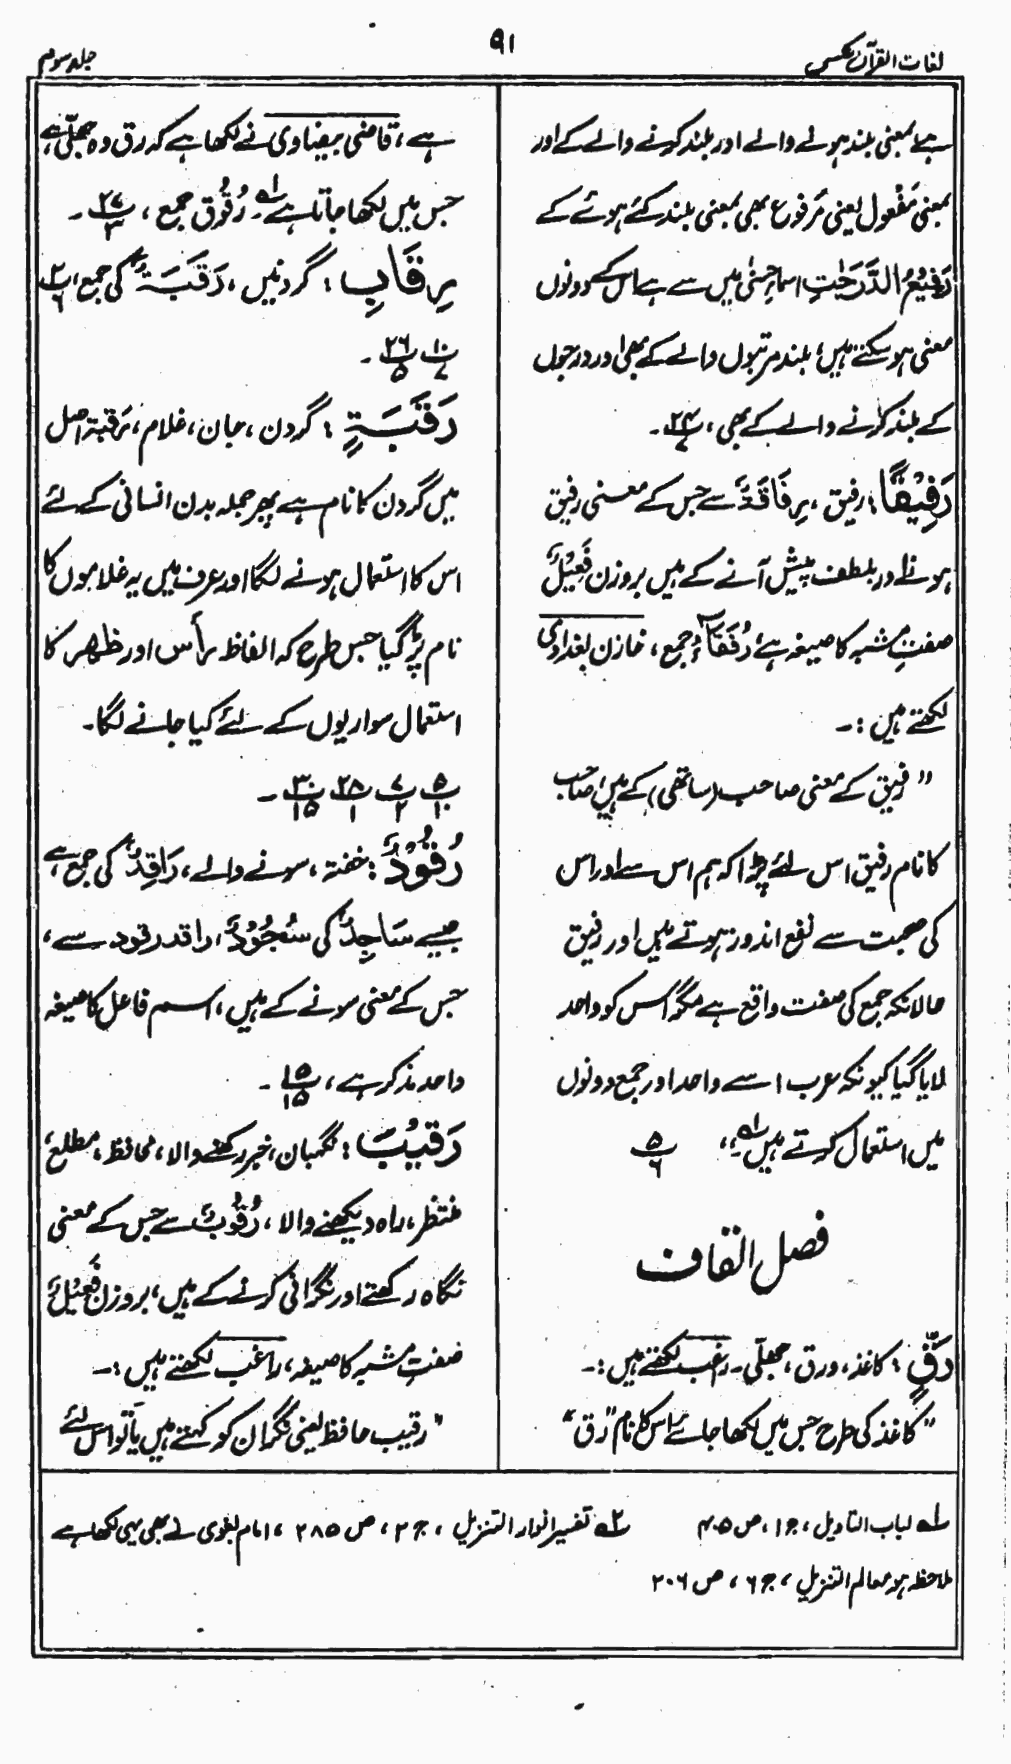 لغات القرآن عکسی
۹۱
جلد سوم
ہے بمعنی بلند ہونے والے اور بلند کرنے والے کے اور
بمعنی مَفْعُول یعنی مَرفوع بھی بمعنی بلند کئے ہوئے کے
رَفِیْعُ الدَّرَجٰتِ اسماءِ حسنٰی میں سے ہے اس کے دونوں
معنی ہو سکتے ہیں، بلند مرتبوں والے کے بھی اور درجوں
کے بلند کرنے والے کے بھی، ۲۴/۷۔
رَفِیْقًا: رفیق، رِفَاقَۃٌ سے جس کے معنی رفیق
ہونے اور بلطف پیش آنے کے ہیں بروزن فَعِیْلٌ
صفتِ مشبہ کا صیغہ ہے رُفَقَاءُ جمع، خازن بغدادی
لکھتے ہیں:۔
"رفیق کے معنی صاحب (ساتھی) کے ہیں، صاحب
کا نام رفیق اس لئے پڑا کہ ہم اس سے اور اس
کی صحبت سے نفع اندوز ہوتے ہیں اور رفیق
حالانکہ جمع کی صفت واقع ہے مگر اس کو واحد
لایا گیا کیونکہ عرب اسے واحد اور جمع دونوں
میں استعمال کرتے ہیں۔ ؎۱" ۵/۶
فصل القاف
رَقٍّ: کاغذ، ورق، جھلّی۔ راغب لکھتے ہیں:۔
"کاغذ کی طرح جس میں لکھا جائے اس کا نام "رق"
ہے، قاضی بیضاوی نے لکھا ہے کہ رق وہ جھلّی ہے
جس میں لکھا جاتا ہے ؎۱۔ رُقُوق جمع، ۲۷/۳۔
رِقَابِ: گردنیں، رَقَبَۃٌ کی جمع، ۲/۶
۱۰/۷ ۲۶/۵۔
رَقَبَۃٍ: گردن، جان، غلام، رَقبۃ اصل
میں گردن کا نام ہے پھر جملہ بدن انسانی کے لئے
اس کا استعمال ہونے لگا اور عرف میں یہ غلاموں کا
نام پڑ گیا جس طرح کہ الفاظ رأس اور ظہر کا
استعمال سواریوں کے لئے کیا جانے لگا۔
۵/۱۰ ۷/۲ ۲۸/۱ ۳۰/۱۵۔
رُقُوْدٌ: خفتہ، سونے والے، رَاقِدٌ کی جمع ہے
جیسے سَاجِدٌ کی سُجُوْدٌ، راقد رقود سے،
جس کے معنی سونے کے ہیں، اسم فاعل کا صیغہ
واحد مذکر ہے، ۱۵/۱۵۔
رَقِیْبٌ: نگہبان، خبر رکھنے والا، محافظ، مطلع،
منتظر، راہ دیکھنے والا، رُقُوْبٌ سے جس کے معنی
نگاہ رکھنے اور نگرانی کرنے کے ہیں، بروزن فَعِیْلٌ
صفتِ مشبہ کا صیغہ، راغب لکھتے ہیں:۔
"رقیب حافظ یعنی نگران کو کہتے ہیں یا تو اس لئے
؎۱ لباب التاویل، ج ۱، ص ۴۰۵ ؎۲ تفسیر انوار التنزیل، ج ۲، ص ۲۸۵، امام بغوی نے بھی یہی لکھا ہے
ملاحظہ ہو معالم التنزیل، ج ۶، ص ۲۰۶